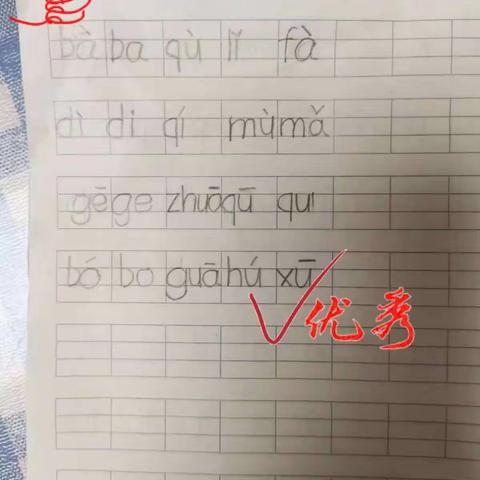 bà ba qù lǐ fà
dì di qí mù mǎ
gē ge zhuō qū qu
bó bo guā hú xū
优秀